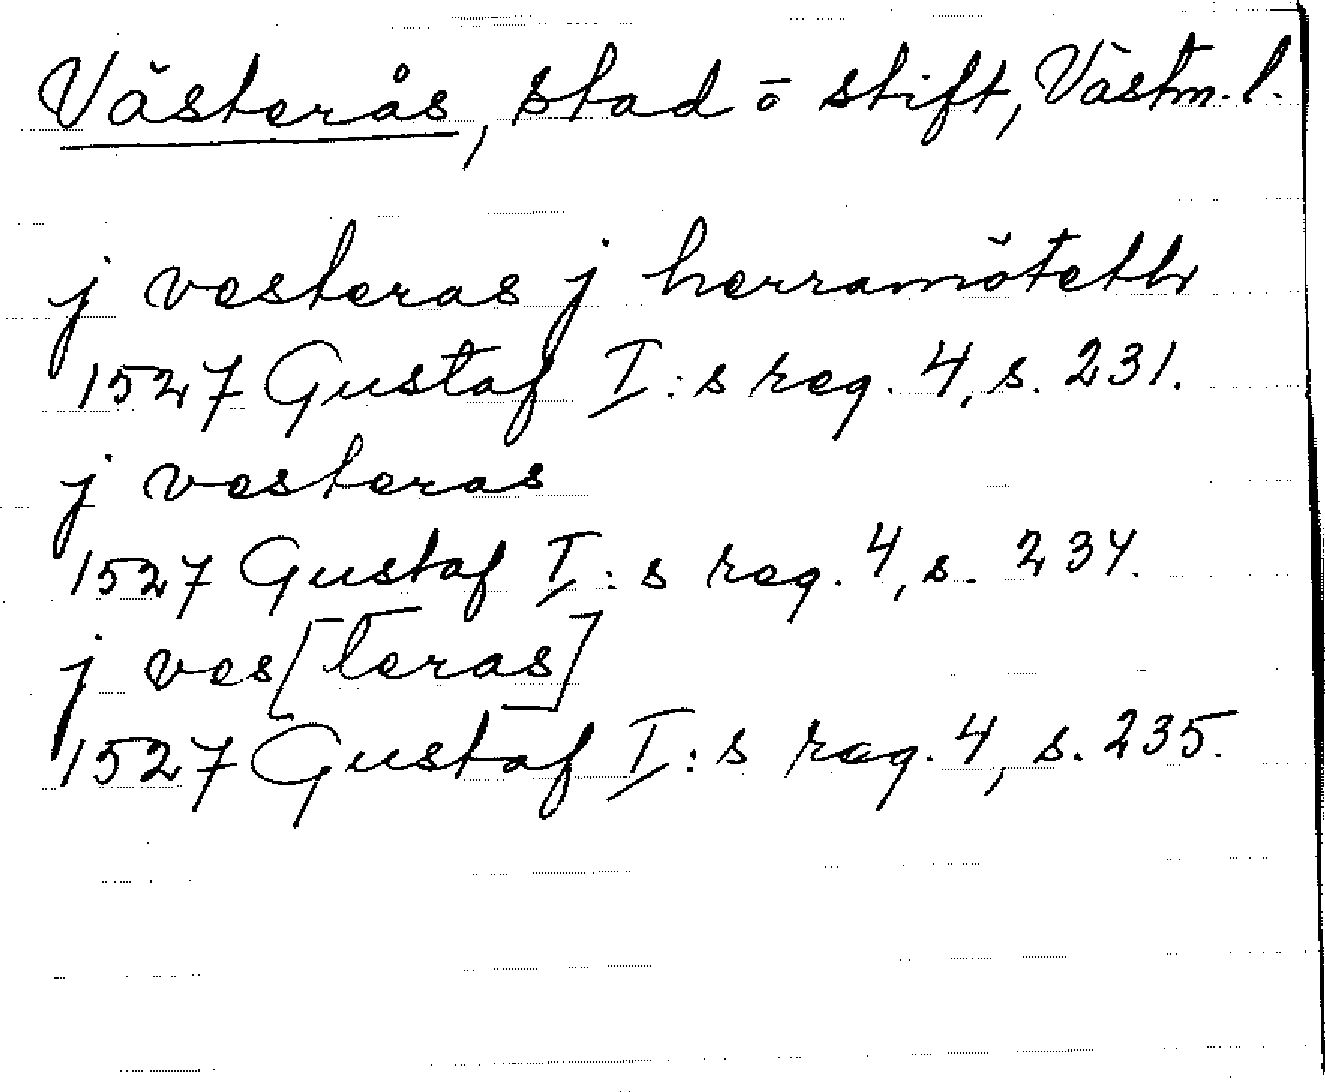 Västerås, stad o stift, Västm. l.
j vesteras j herramöteth
1527 Gustaf I:s reg. 4, s. 231.
j vesteras
1527 Gustaf I:s reg. 4, s. 234.
j ves[teras]
1527 Gustaf I:s reg. 4, s. 235.